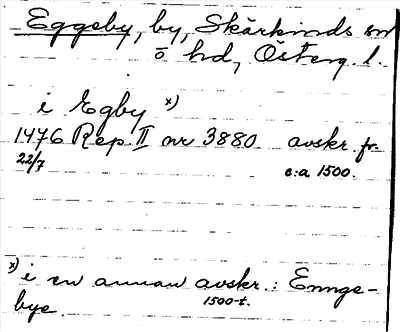 Eggeby, by, Skärkinds sn
ö hd, Österg. l.
i Egby x)
1476 Rep. II nr 3880. avskr. fr.
22/7 c:a 1500.
x) i en annan avskr.: Ennge-
1500-t.
bye.